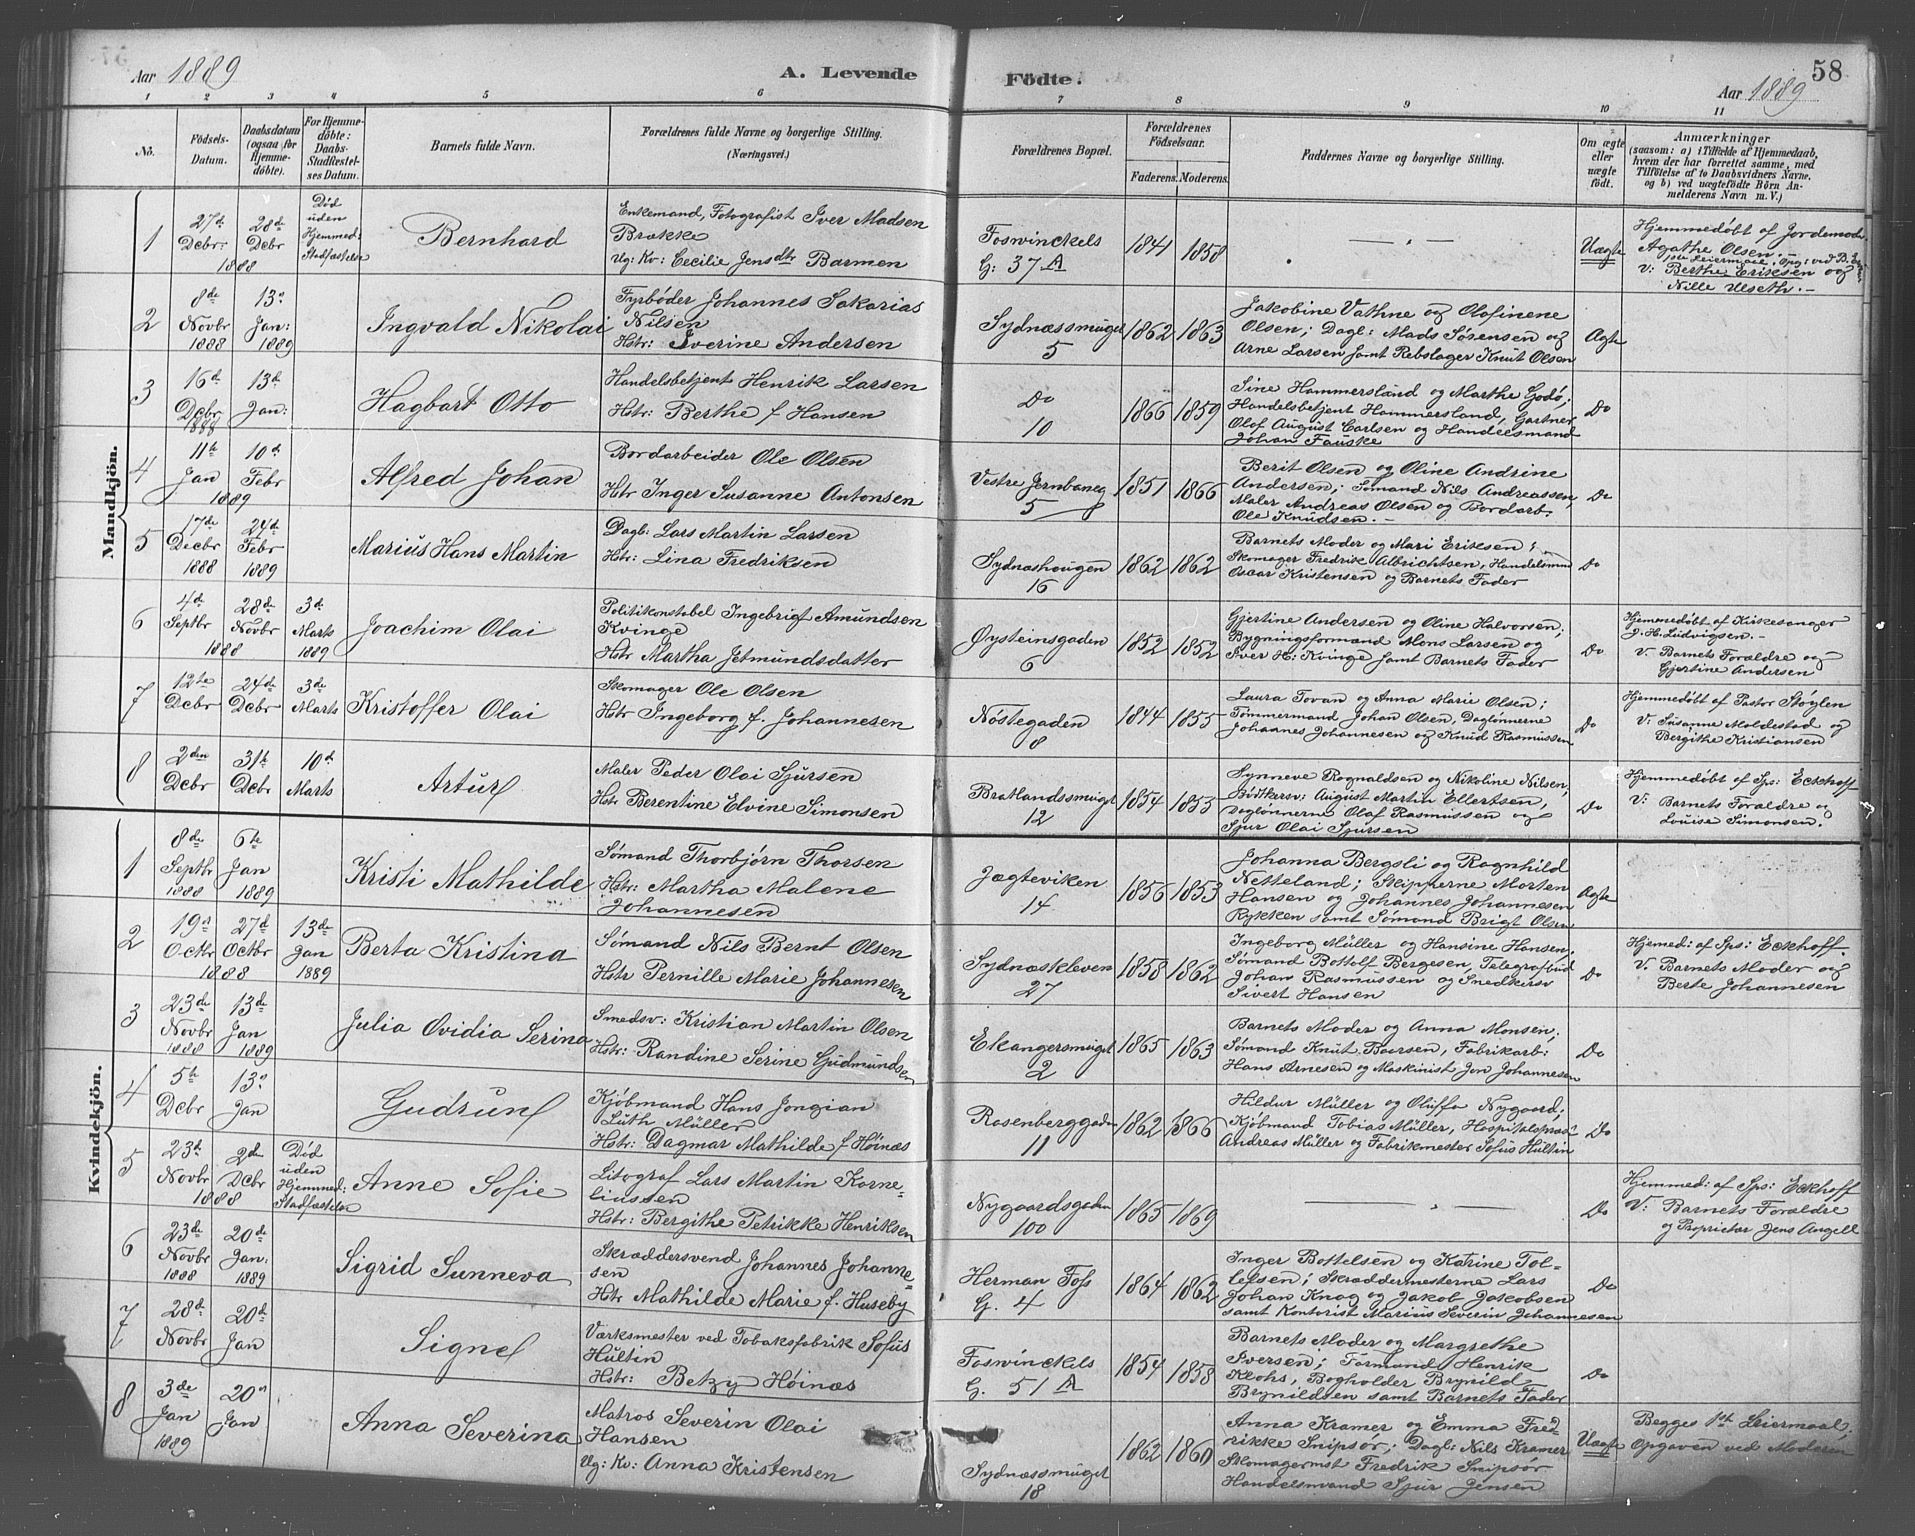 Aar 1889
A. Levende
Fødte.
Aar 1889
58
1 2 3 4 5 6 7 8 9 10 11
No.
Fødsels-
Datum.
Daabsdatum
(ogsaa for
Hjemme-
døbte).
For Hjemme-
døbte:
Daabs-
Stadfæstel-
ses Datum.
Barnets fulde Navn.
Forældrenes fulde Navne og borgerlige Stilling.
(Næringsvei.)
Forældrenes Bopæl.
Forældrenes
Fødselsaar.
Faderens. Moderens.
Faddernes Navne og borgerlige Stilling.
Om ægte
eller
uægte
født.
Anmærkninger
(saasom: a) i Tilfælde af Hjemmedaab,
hvem der har forrettet samme, med
Tilføielse af to Daabsvidners Navne,
og b) ved uægtefødte Børn An-
melderens Navn m. V.)
Mandkjön.
1
27de
Decbr:
28de
Decbr
1888
Død
uden
Hjemmed:
Stadfæstelse
Bernhard
Enkemand, Fotografist Iver Madsen
Brække
Ug: Kv: Cecilie Jensdtr Barmen
Foswinckels
G: 37 A
1841 1858
— „ —
Uægte
Hjemmedøbt af Jordemoder
Agathe Olsen.
V: Berthe Eriksen og
Nille Ulseth. —
2
8de
Novbr
1888
13de
Jan:
1889
Ingvald Nikolai
Fyrbøder Johannes Sakarias
Nilsen
Hstr: Iverine Andersen
Sydnæssmuget
5
1862 1863
Jakobine Vathne og Olofinene
Olsen; Dagl: Mads Sørensen og
Arne Larsen samt Rebslager Knut Olsen
Ægte
3
16de
Decbr
1888
13de
Jan:
Hagbart Otto
Handelsbetjent Henrik Larsen
Hstr: Berthe f Hansen
Do
10
1866 1859
Sine Hammersland og Marthe Godø;
Handelsbetjent Hammersland, Gartner
Olaf August Carlsen og Handelsmand
Johan Fauske
Do
4
11te
Jan
10de
Febr
1889
Alfred Johan
Bordarbeider Ole Olsen
Hstr Inger Susanne Antonsen
Vestre Jernbaneg
5
1851 1866
Berit Olsen og Oline Andrine
Andersen; Sømand Nils Andreassen,
Maler Andreas Olsen og Bordarb:
Ole Knudsen. —
Do
5
17de
Decbr
1888
24de
Febr
1889
Marius Hans Martin
Dagl: Lars Martin Larsen
Hstr: Lina Fredriksen
Sydnæshougen
16
1862 1862
Barnets Moder og Mari Eriksen;
Skomager Fredrik Albrichtsen, Handelsmnd
Oscar Kristensen og Barnets Fader
Do
6
4de
Septbr
28de
Novbr
1888
3de
Marts
1889
Joachim Olai
Politikonstabel Ingebrigt Amundsen
Kvinge
Hstr Martha Jetmundsdatter
Øysteinsgaden
6
1852 1852
Gjertine Andersen og Oline Halvorsen;
Bygningsformand Mons Larsen og
Iver H: Kvinge samt Barnets Fader
Do
Hjemmedøbt af Kirkesanger
J. H. Ludvigsen. —
V. Barnets Forældre og
Gjertine Andersen
7
12te
Decbr
24de
Decbr
3de
Marts
Kristoffer Olai
Skomager Ole Olsen
Hstr Ingeborg f. Johannesen
Nøstegaden
8
1844 1855
Laura Tovan og Anna Marie Olsen;
Tømmermand Johan Olsen, Daglønnerne
Johannes Johannesen og Knud Rasmussen
Do
Hjemmedøbt af Pastor Støylen
V: Susanne Moldestad og
Bergithe Kristiansen
8
2den
Decbr
31te
Decbr
10de
Marts
Artur
Maler Peder Olai Sjursen
Hstr Berentine Elvine Simonsen
Bratlandssmuget
12
1854 1853
Synneve Rognaldsen og Nikoline Nilsen,
Bødtkersv: August Martin Ellertsen,
Daglønnerne Olaf Rasmussen og
Sjur Olai Sjursen
Do
Hjemmedøbt af Sps: Eckhoff
V: Barnets Forældre og
Louise Simonsen.
Kvindekjön.
1
8de
Septbr
1888
6te
Jan
1889
Kristi Mathilde
Sømand Thorbjørn Thorsen
Hstr: Martha Malene
Johannesen
Jægteviken
14
1856 1853
Johanna Bergsli og Ragnhild
Netteland; Skipperne Morten
Hansen og Johannes Johannesen
Rykken samt Sømand Brigt Olsen
Ægte
2
19de
Octbr
27de
Octbr
1888
13de
Jan
1889
Berta Kristina
Sømand Nils Bernt Olsen
Hstr Pernille Marie Johannesen
Sydnæskleven
27
1858 1862
Ingeborg Müller og Hansine Hansen;
Sømand Bottolf Bergesen, Telegrafbud
Johan Rasmussen og Snedkersv
Sivert Hansen
Do
Hjemmed: af Sps: Eckhoff.
V. Barnets Moder og
Berte Johannesen
3
23de
Novbr
1888
13de
Jan
1889
Julia Ovidia Serina
Smedsv: Kristian Martin Olsen
Hstr: Randine Serine Gudmundsen
Ekangersmuget
2
1865 1863
Barnets Moder og Anna Monsen;
Sømand Knut Baarsen, Fabrikarb:
Hans Arnesen og Maskinist Jon Johannesen
Do
4
5te
Decbr
13de
Jan
Gudrun
Kjøbmand Hans Jongian
Luth Müller
Hstr: Dagmar Mathilde f Høinæs
Rosenberggaden
11
1862 1866
Hildur Müller og Oluffa Nygaard;
Kjøbmand Tobias Müller, Hospitalspræst
Andreas Müller og Fabrikmester Sofus Hultin
Do
5
23de
Novbr
2de
Decbr
1888
Død
uden
Hjemmed:
Stadfæstelse
Anne Sofie
Litograf Lars Martin Korne-
liussen
Hstr: Bergithe Petrikke Henriksen
Nygaardsgaden
100
1865 1869
— „ —
Do
Hjemmed: af Sps: Eckhoff
V: Barnets Forældre
og Proprietær Jens Angell
6
23de
Novbr
1888
20de
Jan:
1889
Sigrid Sunneva
Skræddersvend Johannes Johanne-
sen
Hstr Mathilde Marie f. Huseby
Herman Foss
G. 4
1864 1862
Inger Bottelsen og Katrine Tol-
lefsen; Skræddermesterne Lars
Johan Knag og Jakob Jakobsen
samt Kontorist Marius Severin Johannesen
Do
7
28de
Novbr
20de
Jan
Signe
Værksmester ved Tobaksfabrik Sofus
Hultin
Hstr: Betzy Høinæs
Foswinckels
G. 51 A
1854 1858
Barnets Moder og Margrethe
Iversen; Formand Henrik
Klohs, Bogholder Brynild
Brynildsen samt Barnets Fader
Do
8
3de
Jan
1889
20de
Jan
Anna Severina
Matros Severin Olai
Hansen
Ug: Kv: Anna Kristensen
Sydnæssmuget
18
1862 1860
Anna Kramer og Emma Fred-
rikke Snipsør; Dagl: Nils Kramer
Skomagermst Fredrik Snipsør
Handelsmand Sjur Jensen
Uægte
Begges 1ste Leiermaal.
Opgaven ved Moderen